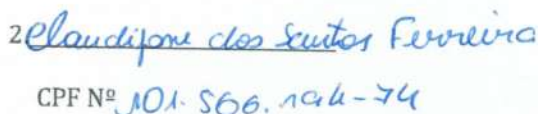 2 Claudipone dos Santos Ferreira
CPF Nº 101.566.